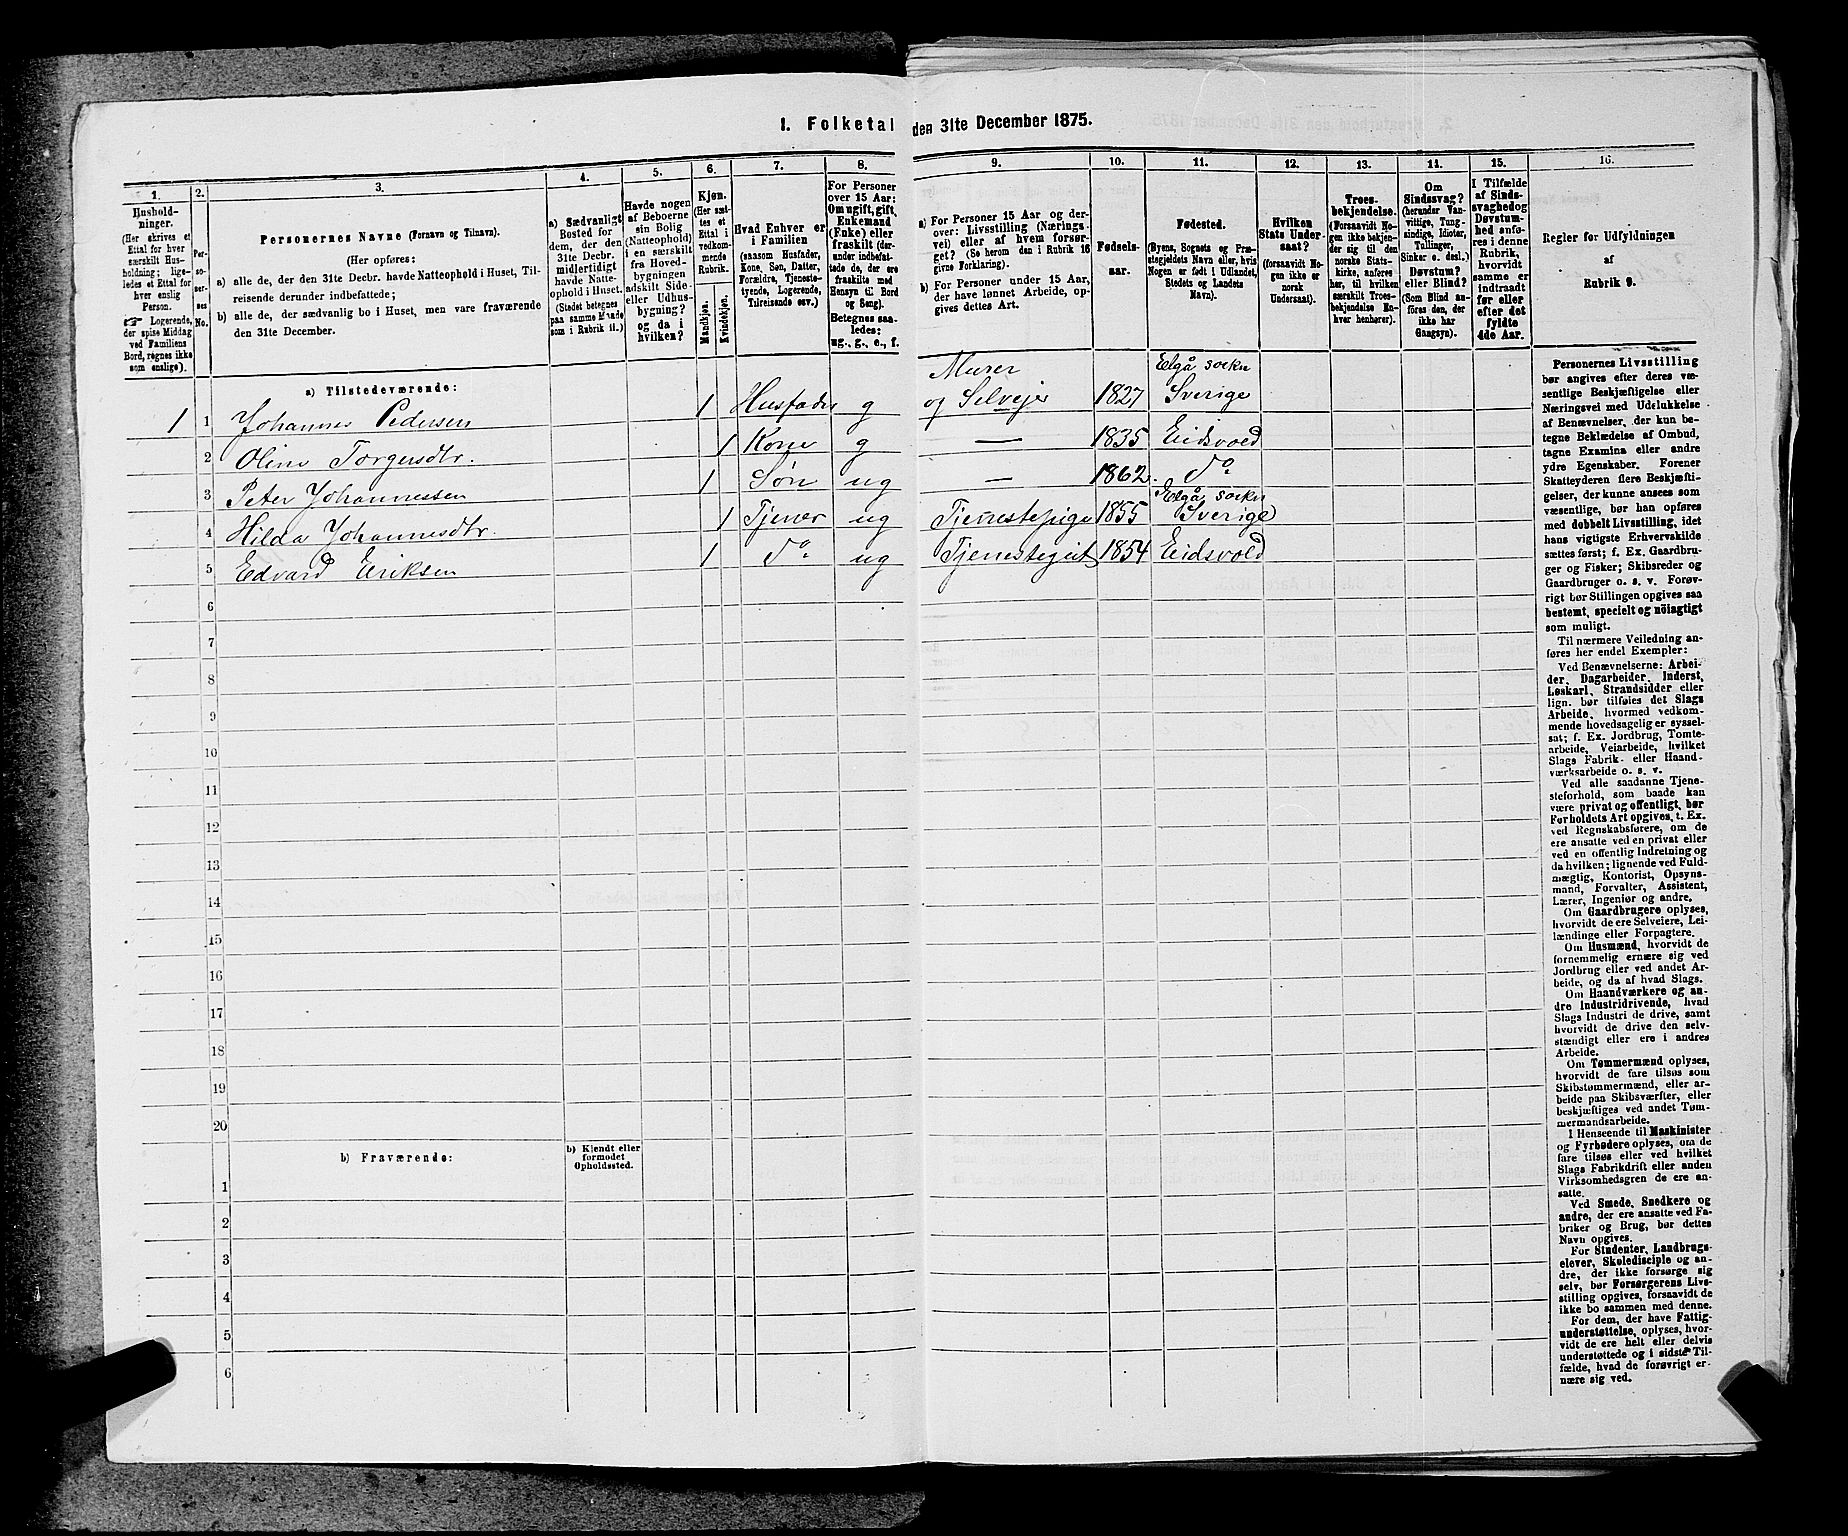 1. Folketal den 31te December 1875.
1.
2.
3.
4.
5.
6.
7.
8.
9.
10.
11.
12.
13.
14.
15.
16.
Hushold-
ninger.
(Her skrives et
Ettal for hver
særskilt Hus-
holdning; lige-
ledes et Ettal for
hver enslig
Person.
☞ Logerende,
der spise Middag
ved Familiens
Bord, regnes ikke
som enslige).
Per-
so-
ner-
nes
No.
Personernes Navne (Fornavn og Tilnavn).
(Her opføres:
a) alle de, der den 31te Decbr. havde Natteophold i Huset, Til-
reisende derunder indbefattede;
b) alle de, der sædvanlig bo i Huset, men vare fraværende
den 31te December.
a) Sædvanligt
Bosted for
dem, der den
31te Decbr.
midlertidigt
havde Natte-
ophold i Huset.
(Stedet betegnes
paa samme Maade
som i Rubrik 11.)
Havde nogen
af Beboerne
sin Bolig
(Natteophold)
i en særskilt
fra Hoved-
bygningen
adskilt Side-
eller Udhus-
bygning?
og da i
hvilken?
Kjøn.
(Her sæt-
tes et
Ettal i
vedkom-
mende
Rubrik.
Mandkjøn.
Kvindekjøn.
Hvad Enhver er
i Familien
(saasom Husfader,
Kone, Søn, Datter,
Forældre, Tjeneste-
tyende, Logerende,
Tilreisende osv.)
For Personer
over 15 Aar:
Om ugift, gift,
Enkemand
(Enke) eller
fraskilt (der-
under indbefat-
tede de, der ere
fraskilte med
Hensyn til Bord
og Seng).
Betegnes saa-
ledes:
ug., g., e., f.
a) For Personer 15 Aar og der-
over: Livsstilling (Nærings-
vei) eller af hvem forsør-
get? (Se herom den i Rubrik 16
givne Forklaring).
b) For Personer under 15 Aar,
der have lønnet Arbeide, op-
gives dettes Art.
Fødsels-
aar.
Fødested.
(Byens, Sognets og Præ-
stegjeldets Navn eller, hvis
Nogen er født i Udlandet,
Stedets og Landets
Navn).
Hvilken
Stats Under-
saat?
(forsaavidt No-
gen ikke er
norsk
Undersaat).
Troes-
bekjendelse.
(Forsaavidt No-
gen ikke bekjen-
der sig til den
norske Stats-
kirke, anføres
her, til hvilken
særskilt Troes-
bekjendelse En-
hver henhører).
Om
Sindssvag?
(herunder Van-
vittige, Tung-
sindige, Idioter,
Tullinger,
Sinker o. desl.)
Døvstum?
eller Blind?
(Som Blind an-
føres den, der
ikke har
Gangsyn).
I Tilfælde
af Sinds-
svaghed og
Døvstum-
hed anfø-
res i denne
Rubrik,
hvorvidt
samme er
indtraadt
før eller
efter det
fyldte
4de Aar.
Regler for Udfyldningen
af
Rubrik 9.
a) Tilstedeværende:
1 1 Johannes Pedersen 1 Husfader g Murer og Selvejer 1827 Elgå sockn Sverige
2 Oline Torgersdtr. 1 Kone g — 1835 Eidsvold
3 Peter Johannessen 1 Søn ug — 1862. do
4 Hilda Johannesdtr. 1 Tjener ug Tjenestepige 1855 Elgå sockn Sverige
5 Edvard Eriksen 1 do ug Tjenestegut 1854 Eidsvold
6
7
8
9
10
11
12
13
14
15
16
17
18
19
20
b) Fraværende:
b) Kjendt eller
formodet
Opholdssted.
1
2
3
4
5
6
Personernes Livsstilling
bør angives efter deres væ-
sentlige Beskjæftigelse eller
Næringsvei med Udelukkelse
af Benævnelser, der kun be-
tegne Beklædelse af Ombud,
tagne Examina eller andre
ydre Egenskaber. Forener
Skatteyderen flere Beskjæfti-
gelser, der kunne ansees som
væsentlige, bør han opføres
med dobbelt Livsstilling, idet
hans vigtigste Erhvervskilde
sættes først; f. Ex. Gaardbru-
ger og Fisker; Skibsreder og
Gaardbruger o. s. v. Forøv-
rigt bør Stillingen opgives saa
bestemt, specielt og nöiagtigt
som muligt.
Til nærmere Veiledning an-
føres her endel Exempler:
Ved Benævnelserne: Arbei-
der, Dagarbeider, Inderst,
Løskarl, Strandsidder eller
lign. bør tilføies det Slags
Arbeide, hvormed vedkom-
mende hovedsagelig er syssel-
sat; f. Ex. Jordbrug, Tomte-
arbeide, Veiarbeide, hvilket
Slags Fabrik- eller Haand-
værksarbeide o. s. v.
Ved alle saadanne Tjene-
steforhold, som baade kan
være privat og offentligt, bør
Forholdets Art opgives, t. Ex.
ved Regnskabsførere, om de
ere ansatte ved en privat eller
ved en offentlig Indretning og
da hvilken; lignende ved Fuld-
mægtig, Kontorist, Opsyns-
mand, Forvalter, Assistent,
Lærer, Ingeniør og andre.
Om Gaardbrugere oplyses,
hvorvidt de ere Selveiere, Lei-
lændinge eller Forpagtere.
Om Husmænd, hvorvidt de
fornemmelig ernære sig ved
Jordbrug eller ved andet Ar-
beide, og da af hvad Slags.
Om Haandværkere og an-
dre Industridrivende, hvad
Slags Industri de drive, samt
hvorvidt de drive den selv-
stændigt eller ere i andres
Arbeide.
Om Tømmermænd oplyses,
hvorvidt de fare tilsøs som
Skibstømmermænd, eller ar-
beide paa Skibsværfter, eller
beskjæftiges ved andet Tøm-
mermandsarbeide.
I Henseende til Maskinister
og Fyrbødere oplyses, om de
fare tilsøs eller ved hvilket
Slags Fabrikdrift eller anden
Virksomhedsgren de ere an-
satte.
Ved Smede, Snedkere og
andre, der ere ansatte ved Fa-
briker og Brug, bør dettes
Navn opgives.
For Studenter, Landbrugs-
elever, Skoledisciple og an-
dre, der ikke forsørge sig
selv, bør Forsørgerens Livs-
stilling opgives, forsaavidt de
ikke bo sammen med denne.
For dem, der have Fattig-
understøttelse, oplyses, hvor-
vidt de ere helt eller delvis
understøttede og i sidste Til-
fælde, hvad de forøvrigt er-
nære sig ved.